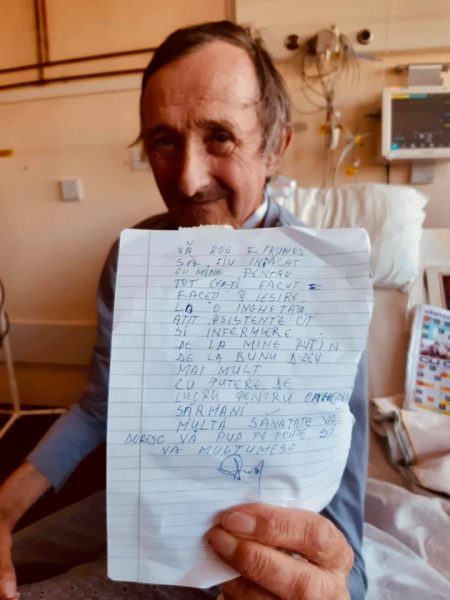 VĂ ROG F. FRUMOS
SĂ FIU INPĂLAT
CU MINE PENTRU
TOT CEAȚI FACUT =
FACEȚI O IESIRE
LA O INGHETATA
ATIT ASISTENTE CÎT
SI INFERMIERE
DE LA MINE PUȚIN
DE LA BUNU D-ZEU
MAI MULT
CU PUTERE DE
LUCRU PENTRU OAMENII
SĂRMANI
MULTĂ SANATATE VĂ
DORESC VĂ PUP PE TOATE SI
VA MULȚUMESC